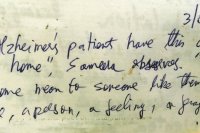 3/
lzheimers patient have this
home", Samera observes.
ome mean to someone like them
, a person, a feeling, or